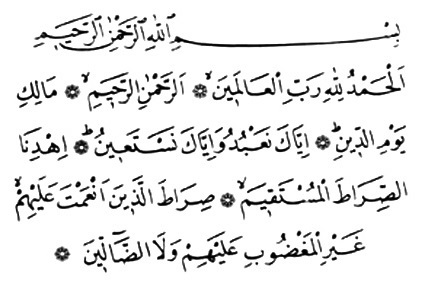 بِسْمِ اللّٰهِ الرَّحْمٰنِ الرَّحٖيمِ
اَلْحَمْدُ لِلّٰهِ رَبِّ الْعَالَمٖينَۙ ❁ اَلرَّحْمٰنِ الرَّحٖيمِۙ ❁ مَالِكِ
يَوْمِ الدّٖينِؕ ❁ اِيَّاكَ نَعْبُدُ وَاِيَّاكَ نَسْتَعٖينُؕ ❁ اِهْدِنَا
الصِّرَاطَ الْمُسْتَقٖيمَۙ ❁ صِرَاطَ الَّذٖينَ اَنْعَمْتَ عَلَيْهِمْۙ
غَيْرِ الْمَغْضُوبِ عَلَيْهِمْ وَلَا الضَّٓالّٖينَ ❁